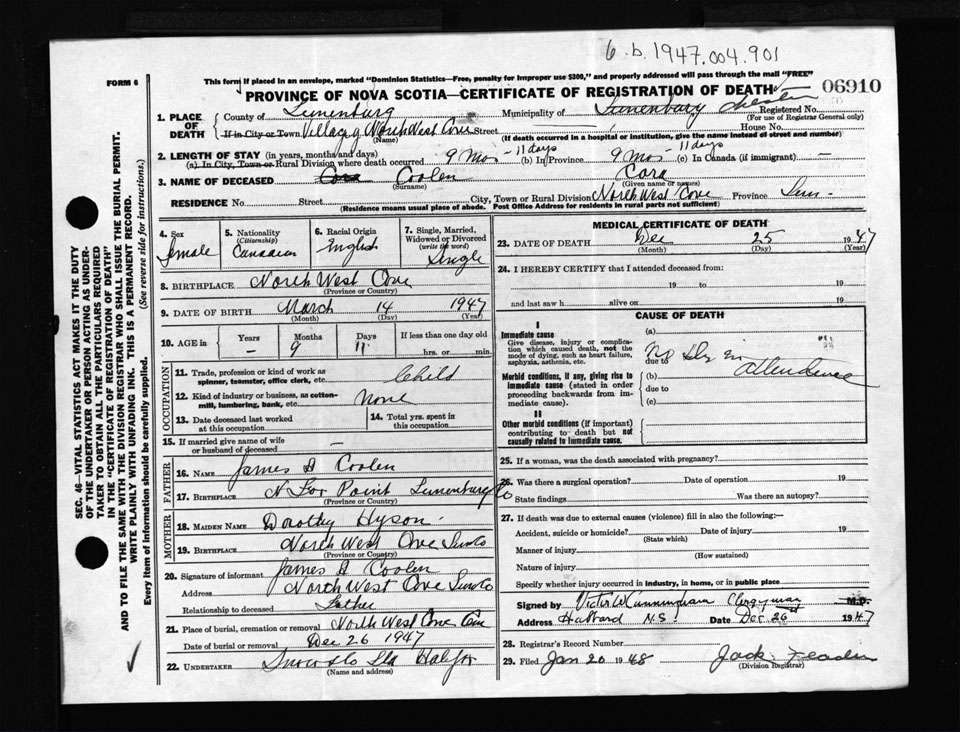 6.b.1947.004.901
FORM 6
This form if placed in an envelope, marked "Dominion Statistics—Free, penalty for improper use $300," and properly addressed will pass through the mail "FREE"
PROVINCE OF NOVA SCOTIA—CERTIFICATE OF REGISTRATION OF DEATH
06910
1. PLACE OF DEATH
County of Lunenburg Municipality of Lunenburg Chester Registered No.
(For use of Registrar General only)
If in City or Town Village of North West Cove Street House No.
(Name) (If death occurred in a hospital or institution, give the name instead of street and number)
2. LENGTH OF STAY (in years, months and days)
(a) In City, Town or Rural Division where death occurred 9 Mos - 11 days (b) In Province 9 Mos - 11 days (c) In Canada (if immigrant) —
3. NAME OF DECEASED Cora Coolen Cora
(Surname) (Given name or names)
RESIDENCE No. Street City, Town or Rural Division North West Cove Province Lun-
(Residence means usual place of abode. Post Office Address for residents in rural parts not sufficient)
4. Sex
Female
5. Nationality
(Citizenship)
Canadian
6. Racial Origin
English
7. Single, Married, Widowed or Divorced
(write the word)
Single
8. BIRTHPLACE North West Cove
(Province or Country)
9. DATE OF BIRTH March 14 1947
(Month) (Day) (Year)
10. AGE in Years Months Days If less than one day old
— 9 11 hrs. or min.
OCCUPATION
11. Trade, profession or kind of work as spinner, teamster, office clerk, etc. Child
12. Kind of industry or business, as cotton-mill, lumbering, bank, etc. None
13. Date deceased last worked at this occupation
14. Total yrs. spent in this occupation
15. If married give name of wife or husband of deceased —
FATHER
16. NAME James A Coolen
17. BIRTHPLACE N Fox Point Lunenburg Co
(Province or Country)
MOTHER
18. MAIDEN NAME Dorothy Hyson
19. BIRTHPLACE North West Cove Lun Co
(Province or Country)
20. Signature of informant James A Coolen
Address North West Cove Lun Co
Relationship to deceased Father
21. Place of burial, cremation or removal North West Cove Cem
Date of burial or removal Dec 26 1947
22. UNDERTAKER Snow & Co Ltd Halifax
(Name and address)
MEDICAL CERTIFICATE OF DEATH
23. DATE OF DEATH Dec 25 1947
(Month) (Day) (Year)
24. I HEREBY CERTIFY that I attended deceased from:
19 to 19
and last saw h alive on 19
CAUSE OF DEATH
I
Immediate cause
Give disease, injury or complication which caused death, not the mode of dying, such as heart failure, asphyxia, asthenia, etc.
(a)
due to
No Dr in attendance
Morbid conditions, if any, giving rise to immediate cause (stated in order proceeding backwards from immediate cause).
(b)
due to
(c)
II
Other morbid conditions (if important) contributing to death but not causally related to immediate cause.
25. If a woman, was the death associated with pregnancy?
26. Was there a surgical operation? Date of operation 19
State findings Was there an autopsy?
27. If death was due to external causes (violence) fill in also the following:—
Accident, suicide or homicide? Date of injury 19
(State which)
Manner of injury
(How sustained)
Nature of injury
Specify whether injury occurred in industry, in home, or in public place
Signed by Victor W Cunningham Clergyman M.D.
Address Hubbard N.S. Date Dec 26th 1947
28. Registrar's Record Number
29. Filed Jan 20 1948 Jack
(Division Registrar)
SEC. 46—VITAL STATISTICS ACT MAKES IT THE DUTY
OF THE UNDERTAKER OR PERSON ACTING AS UNDERTAKER TO OBTAIN ALL THE PARTICULARS REQUIRED
IN THE "CERTIFICATE OF REGISTRATION OF DEATH"
AND TO FILE THE SAME WITH THE DIVISION REGISTRAR WHO SHALL ISSUE THE BURIAL PERMIT.
WRITE PLAINLY WITH UNFADING INK. THIS IS A PERMANENT RECORD.
Every item of information should be carefully supplied. (See reverse side for instructions.)